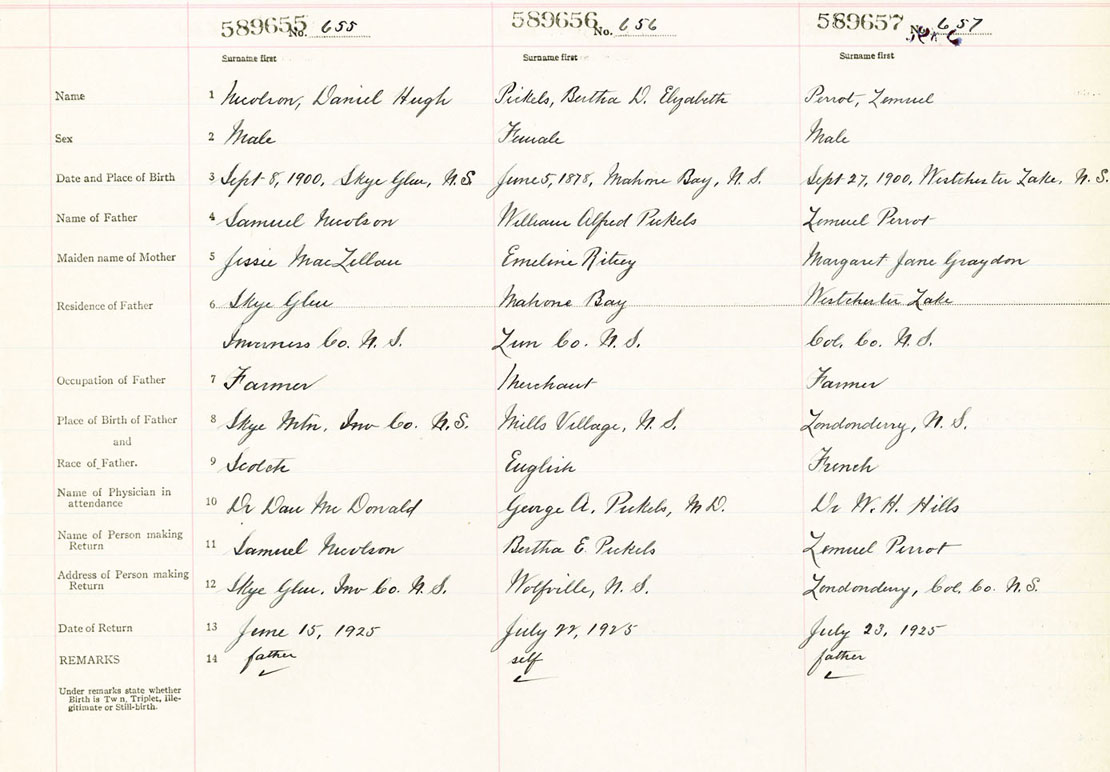 589655 No. 655 589656 No. 656 589657 No. 657
Surname first Surname first Surname first
Name 1 Nicolson, Daniel Hugh Pickels, Bertha D. Elizabeth Perrot, Lemuel
Sex 2 Male Female Male
Date and Place of Birth 3 Sept 8, 1900, Skye Glen, N.S June 5, 1878, Mahone Bay, N.S. Sept 27, 1900, Westchester Lake, N.S.
Name of Father 4 Samuel Nicolson William Alfred Pickels Lemuel Perrot
Maiden name of Mother 5 Jissie MacLellan Emeline Ritcey Margaret Jane Graydon
Residence of Father 6 Skye Glen Mahone Bay Westchester Lake
Inverness Co. N.S. Lun Co. N.S. Col. Co. N.S.
Occupation of Father 7 Farmer Merchant Farmer
Place of Birth of Father 8 Skye Mtn. Inv Co. N.S. Mills Village, N.S. Londonderry, N.S.
and
Race of Father. 9 Scotch English French
Name of Physician in
attendance 10 Dr Dan McDonald George A. Pickels, M.D. Dr W. H. Hills
Name of Person making
Return 11 Samuel Nicolson Bertha E. Pickels Lemuel Perrot
Address of Person making
Return 12 Skye Glen, Inv Co. N.S. Wolfville, N.S. Londonderry, Col. Co. N.S.
Date of Return 13 June 15, 1925 July 22, 1925 July 23, 1925
REMARKS 14 father self father
Under remarks state whether
Birth is Tw n, Triplet, Ille-
gitimate or Still-birth.